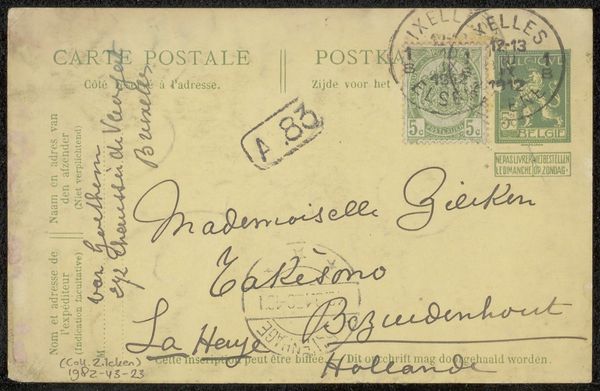 CARTE POSTALE
Côté à l'adresse.
POSTKA
Zijde voor het
IXELLES
IXELLES
12-13
1912
ELSENE
5c 5c
5c
BELGIE
NE PAS LIVRER
LE DIMANCHE
NIET BESTELLEN
OP ZONDAG
A. 83
Mademoiselle Zilcken
Bezuidenhout
La Haye
Hollande
Naam en adres van
den afzender
(Niet verplichtend)
Nom et adresse de
l'expéditeur
(Indication facultative)
M
Chaussée de
Bruxelles
Cette inscription peut être biffée.
Dit opschrift mag doorgehaald worden.
(Coll. Zilcken)
1982-43-23